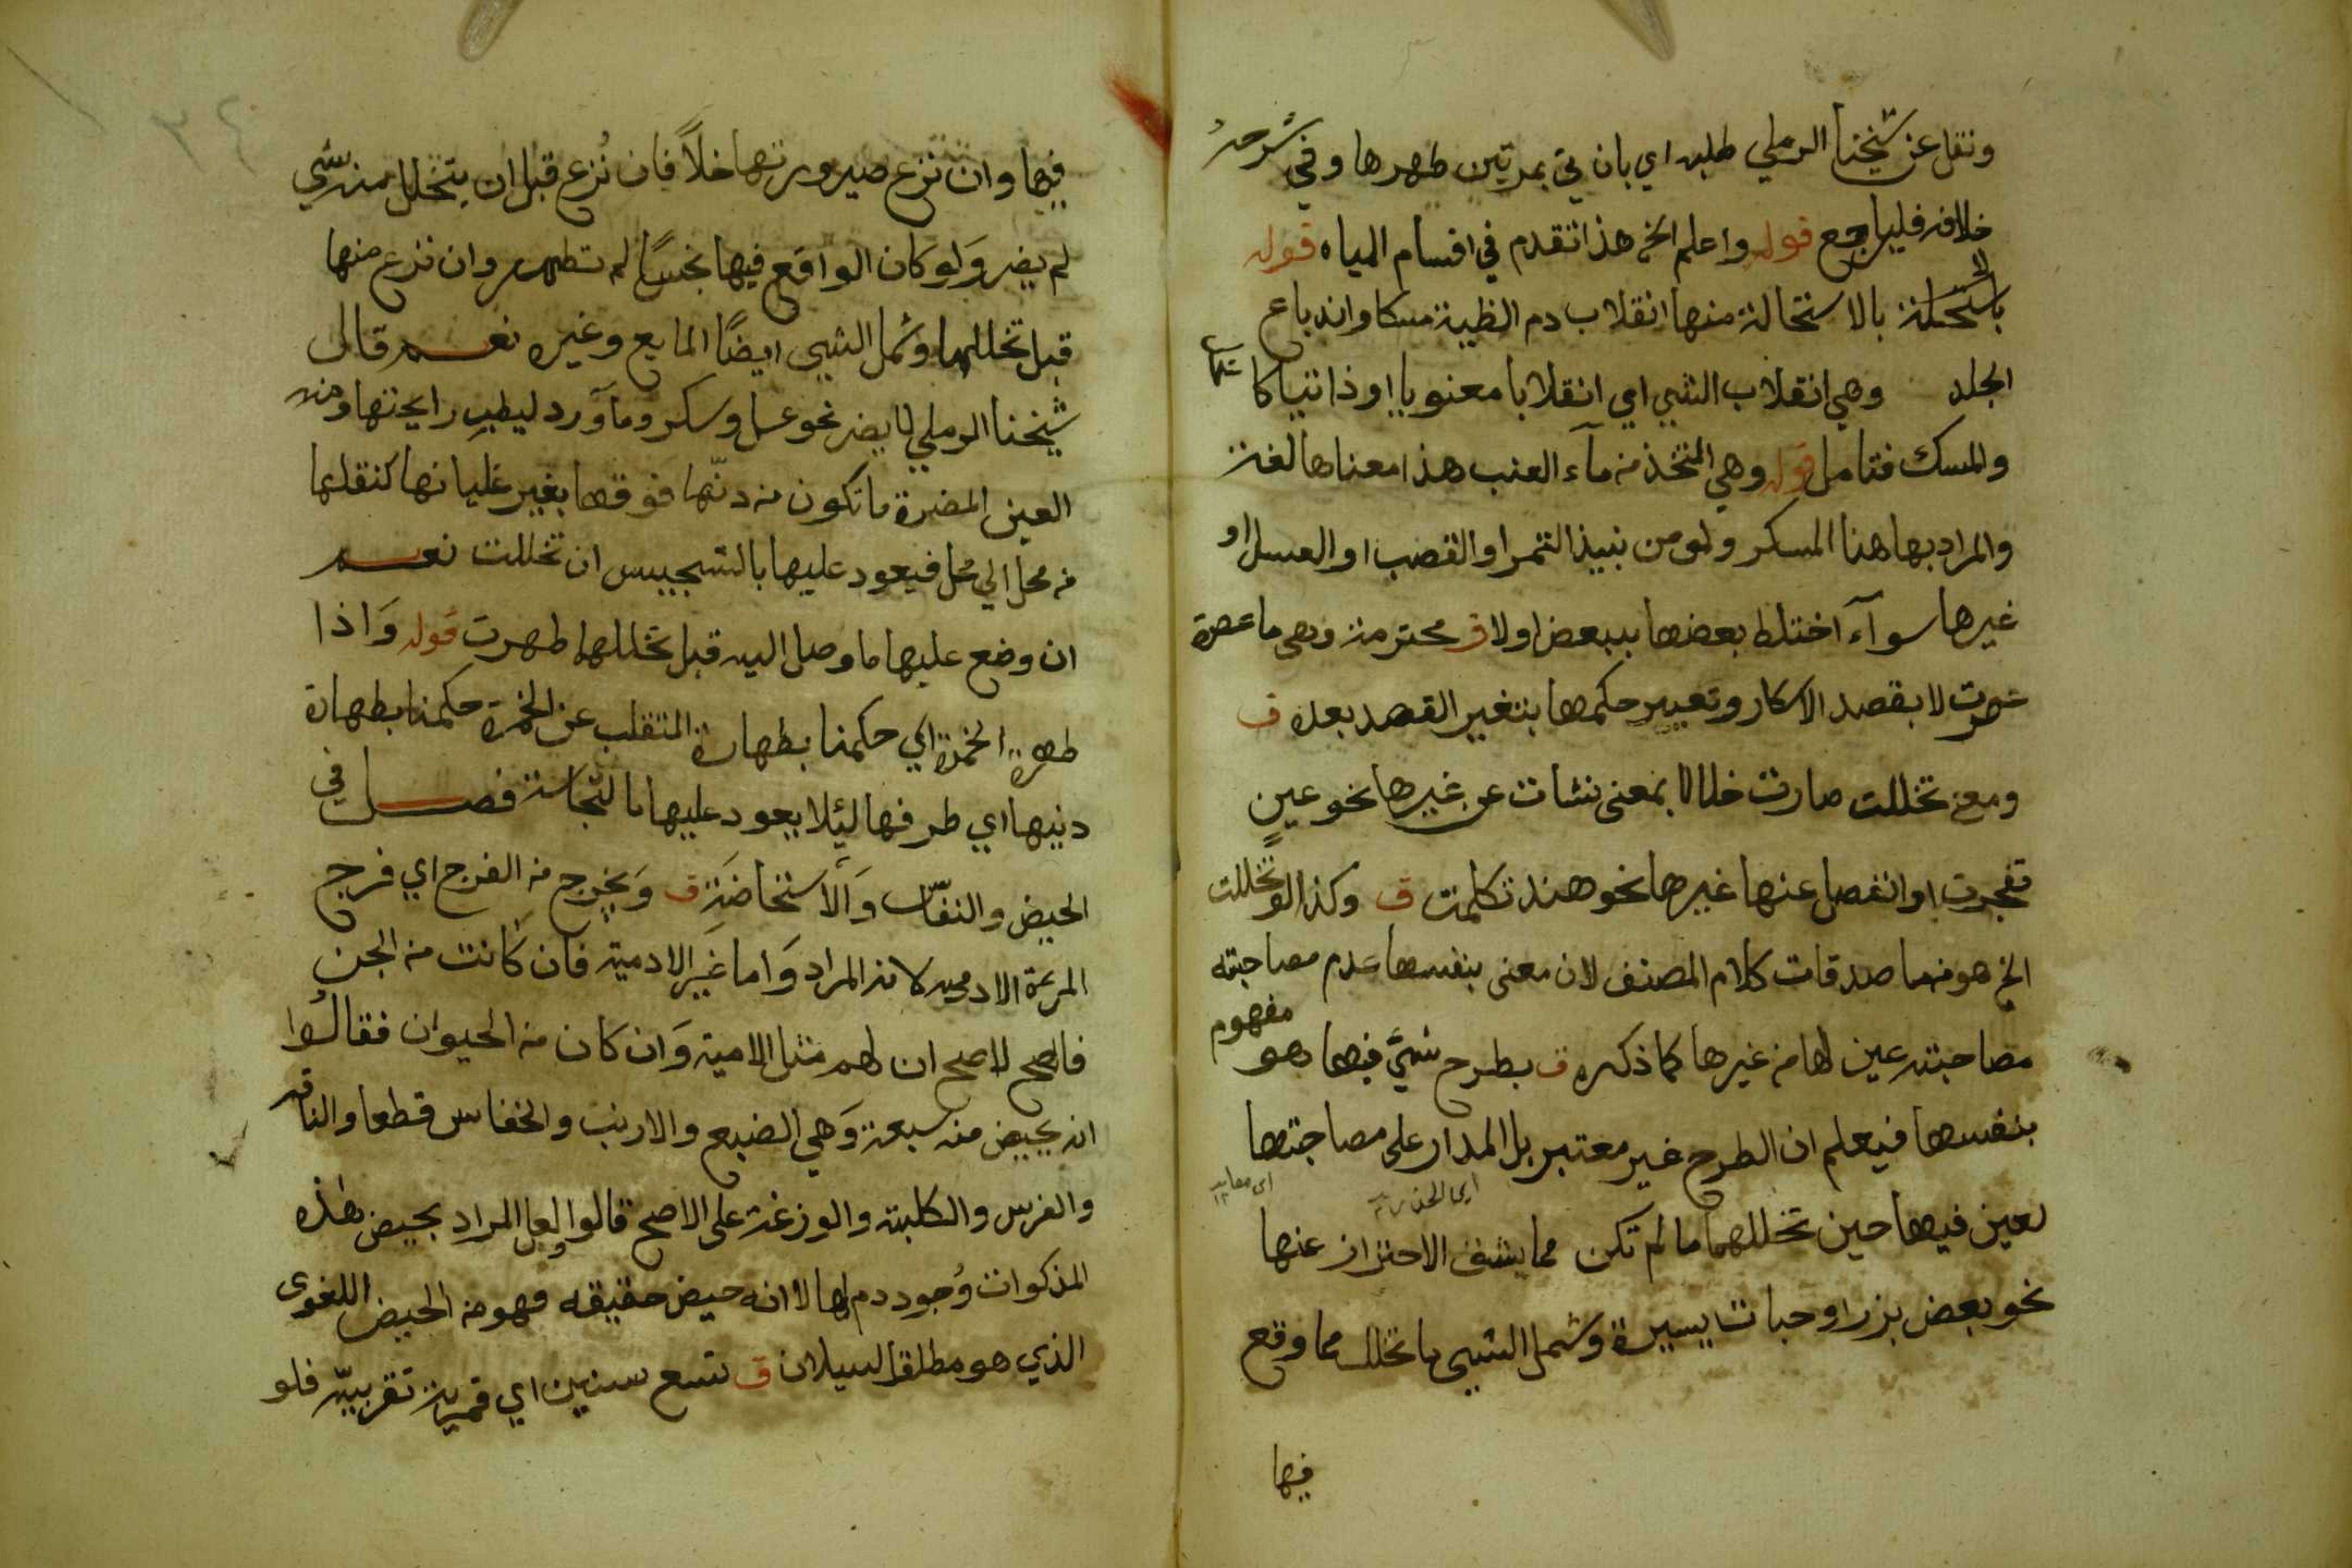 ونقل عن شيخنا الرملي طلبه اي بان تي بمرتين طهرها وفي شرحه
خلافه فليراجع قوله واعلم الخ هذا تقدم في اقسام المياه قوله
بالاستحالة منها انقلاب دم الظبية مسكا واندباع
الجلد وهي انقلاب الشيي اي انقلابا معنويا او ذاتيا كا
والمسك فتامل قوله وهي المتخذ من مآء العنب هذا معناها لغة
والمراد بها هنا المسكر ولو من نبيذ التمر او القصب او العسل او
غيرها سوآء اختلط بعضها ببعض اولا ق محترمة وهي ما عصرة
عصرت لا بقصد الاسكار وتعيير حكمها بتغير القصد بعده ق
ومعنى تخللت صارت خلا لا بمعنى نشات عن غيرها نحو عين
تفجرت او انفصل عنها غيرها نحو هند تكلمت ق وكذا لو تخللت
الخ هو منما صدقات كلام المصنف لان معنى بنفسها عدم مصاحبته
مصاحبته عين لها من غيرها كما ذكره ق بطرح شيء فيها هو مفهوم
بنفسها فيعلم ان الطرح غير معتبر بل المدار على مصاحبتها
لعين فيها حين تخللهما ما لم تكن مما يشف الاحتراز عنها
نحو بعض بزر او حبات يسيرة وشمل الشيي ما تخلل مما وقع
فيها
٣٤
فيها وان نزع صيرورتها خلاً فان نُزع قبل ان يتخلل منه شي
لم يضر وَلو كان الواقع فيها نجسًا لم تطهر وان نزع منها
قبل تخللها وشمل الشيي ايضًا المايع وغيره نعم قال
شيخنا الرملي لا يضر نحو عسل وسكر ومآ ورد ليطيب رايحتها ومنه
العين المضرة ما تكون من دنّها فوقها بغير غليانها كنقلها
من محل الي محل فيعود عليها بالتنجيس ان تخللت نعم
ان وضع عليها ما وصل اليه قبل تخللها طهرت قوله وَاذا
طهرة الخمرة اي حكمنا بطهارة المنقلب عن الخمرة حكمنا بطهارة
دنيها اي طرفها ليئلا يعود عليها بالنجاسة فصل في
الحيض والنفاس وَالاستحاضَة ق وَيخرج من الفرج اي فرج
المرءة الادميه لانه المراد وَاما غير الادمية فان كانت من الجن
فالاصح لاصح ان لهم مثل الامية وَان كان من الحيوان فقالُوا
انه يحيض منه سبعة وَهي الضبع والارنب والخفاس قطعا والناقه
والفرس والكلبته والوزغة على الاصح قالوا ولعل المراد بحيض هذه
المذكوات وُجود دم لها لا انه حيض حقيقه فهو من الحيض اللغوى
الذي هو مطلقا لسيلان ق تسع سنين اي قمرية تقريبيّه فلو